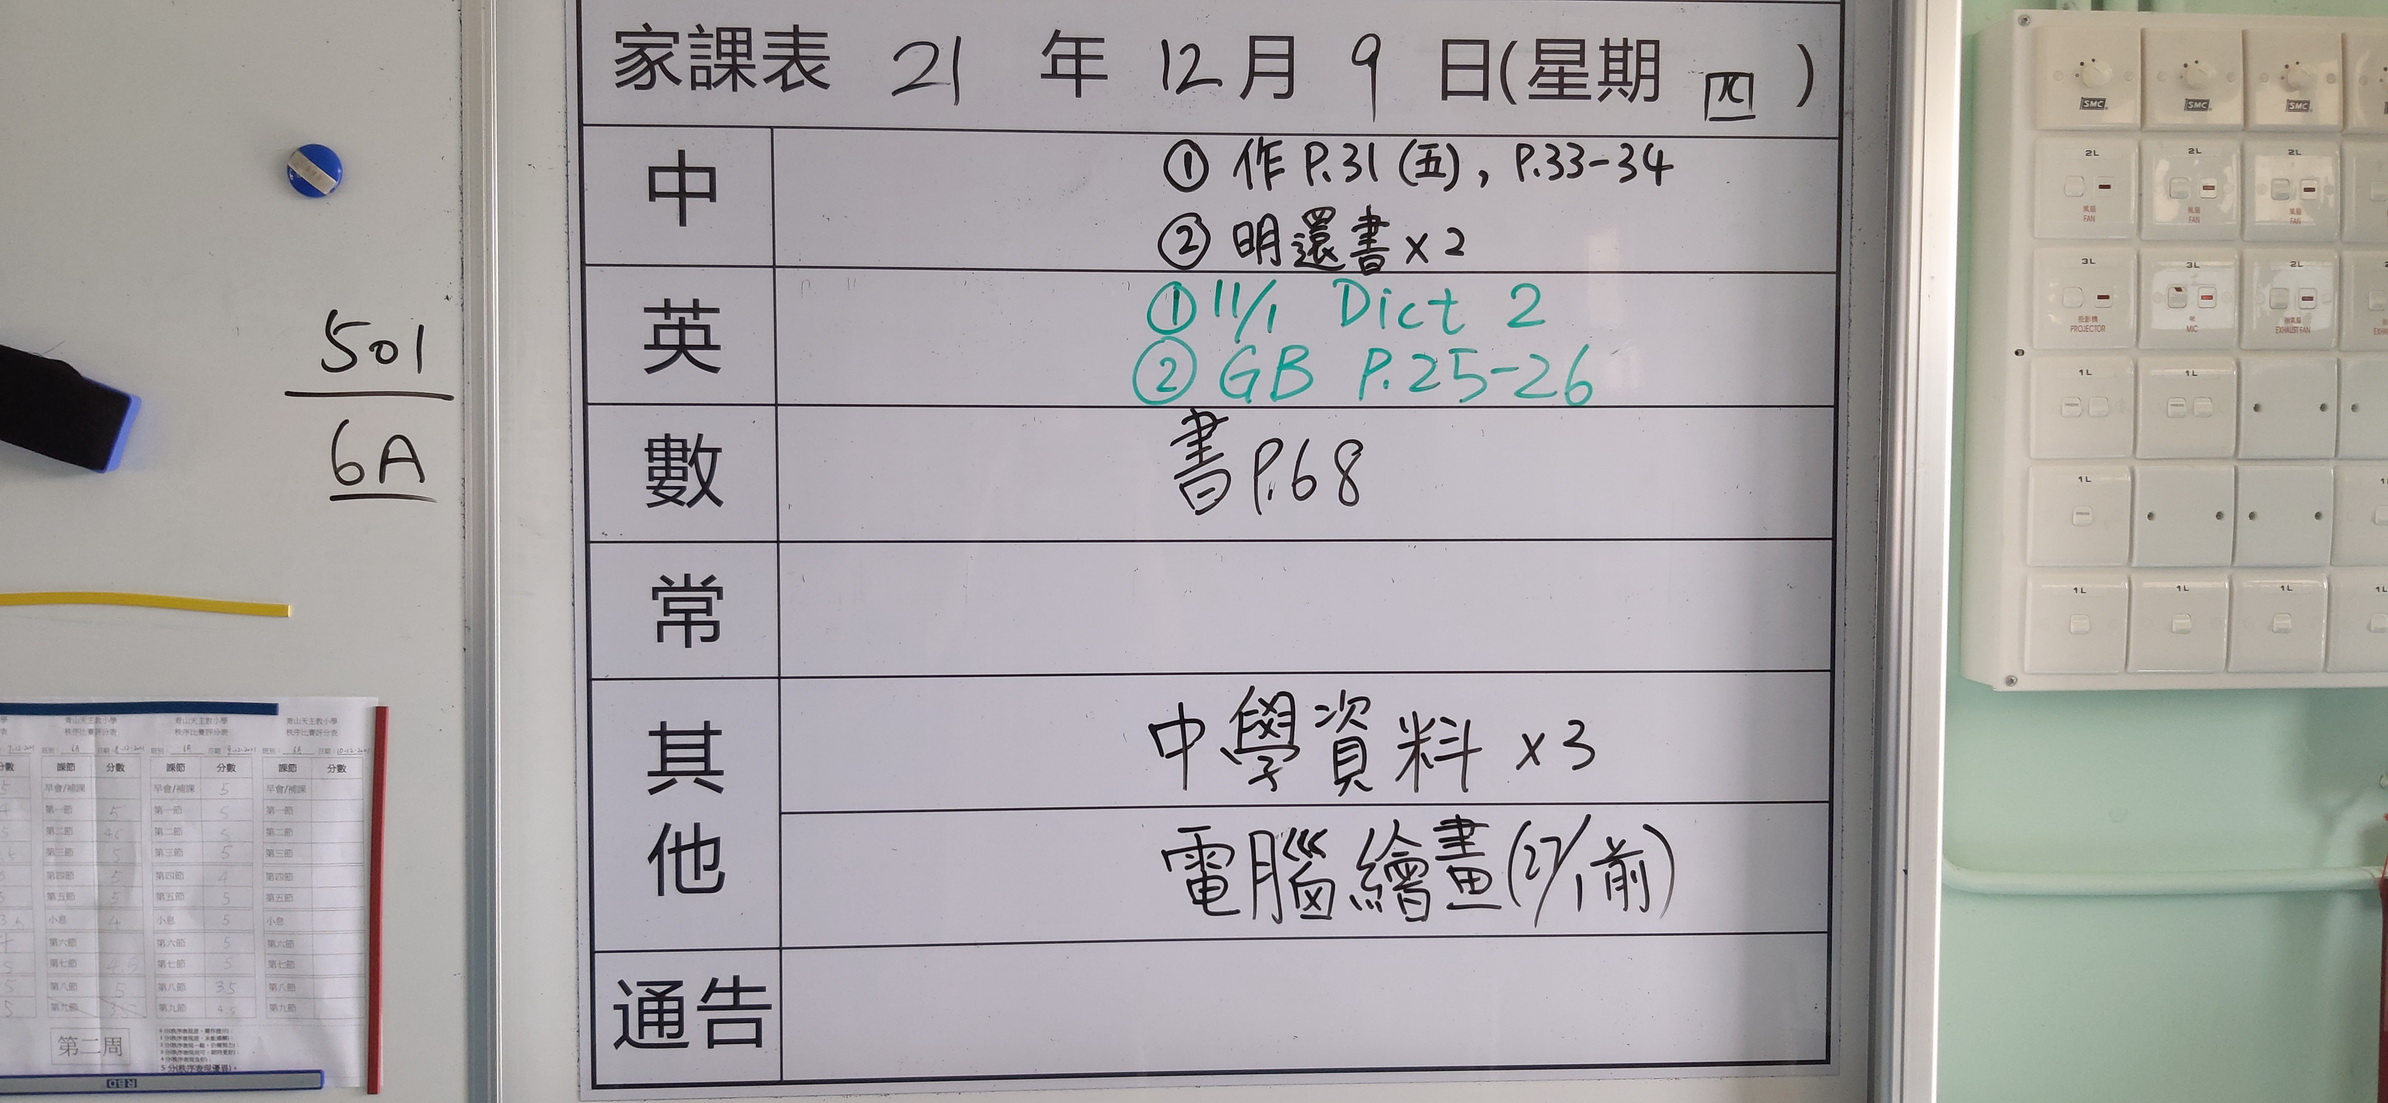 家課表 21 年 12 月 9 日(星期 四 )
中
① 作 P.31 (五), P.33-34
② 明還書 x 2
英
① 11/1 Dict 2
② GB P.25-26
數
書 P.68
常
其他
中學資料 x3
電腦繪畫(27/1前)
通告
501
6A
青山天主教小學 青山天主教小學 青山天主教小學
秩序比賽評分表 秩序比賽評分表 秩序比賽評分表
課節 分數 課節 分數 課節 分數
早會/補課 早會/補課 5 早會/補課
第一節 5 第一節 5 第一節
第二節 第二節 第二節
第三節 5 第三節 5 第三節
第四節 5 第四節 4 第四節
第五節 5 第五節 5 第五節
小息 4 小息 5 小息
第六節 第六節 5 第六節
第七節 4.5 第七節 5 第七節
第八節 5 第八節 3.5 第八節
第九節 第九節 4.5 第九節
第二周
SMC SMC SMC
2L 2L 2L
風扇 風扇 風扇
FAN FAN FAN
3L 3L 2L
投影機 咪 抽氣扇
PROJECTOR MIC EXHAUST FAN
1L 1L
1L
1L 1L 1L 1L